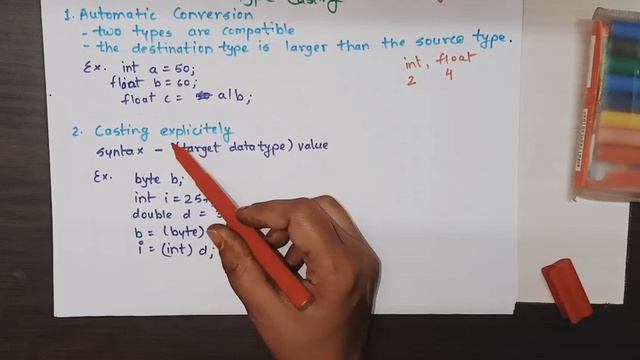 Type Casting
1. Automatic Conversion
- two types are compatible
- the destination type is larger than the source type.
Ex. int a = 50;
float b = 60;
float c = a/b;
int, float
2 4
2. Casting explicitely
syntax - (target datatype) value
Ex. byte b;
int i = 257
double d = 3
b = (byte)
i = (int) d;